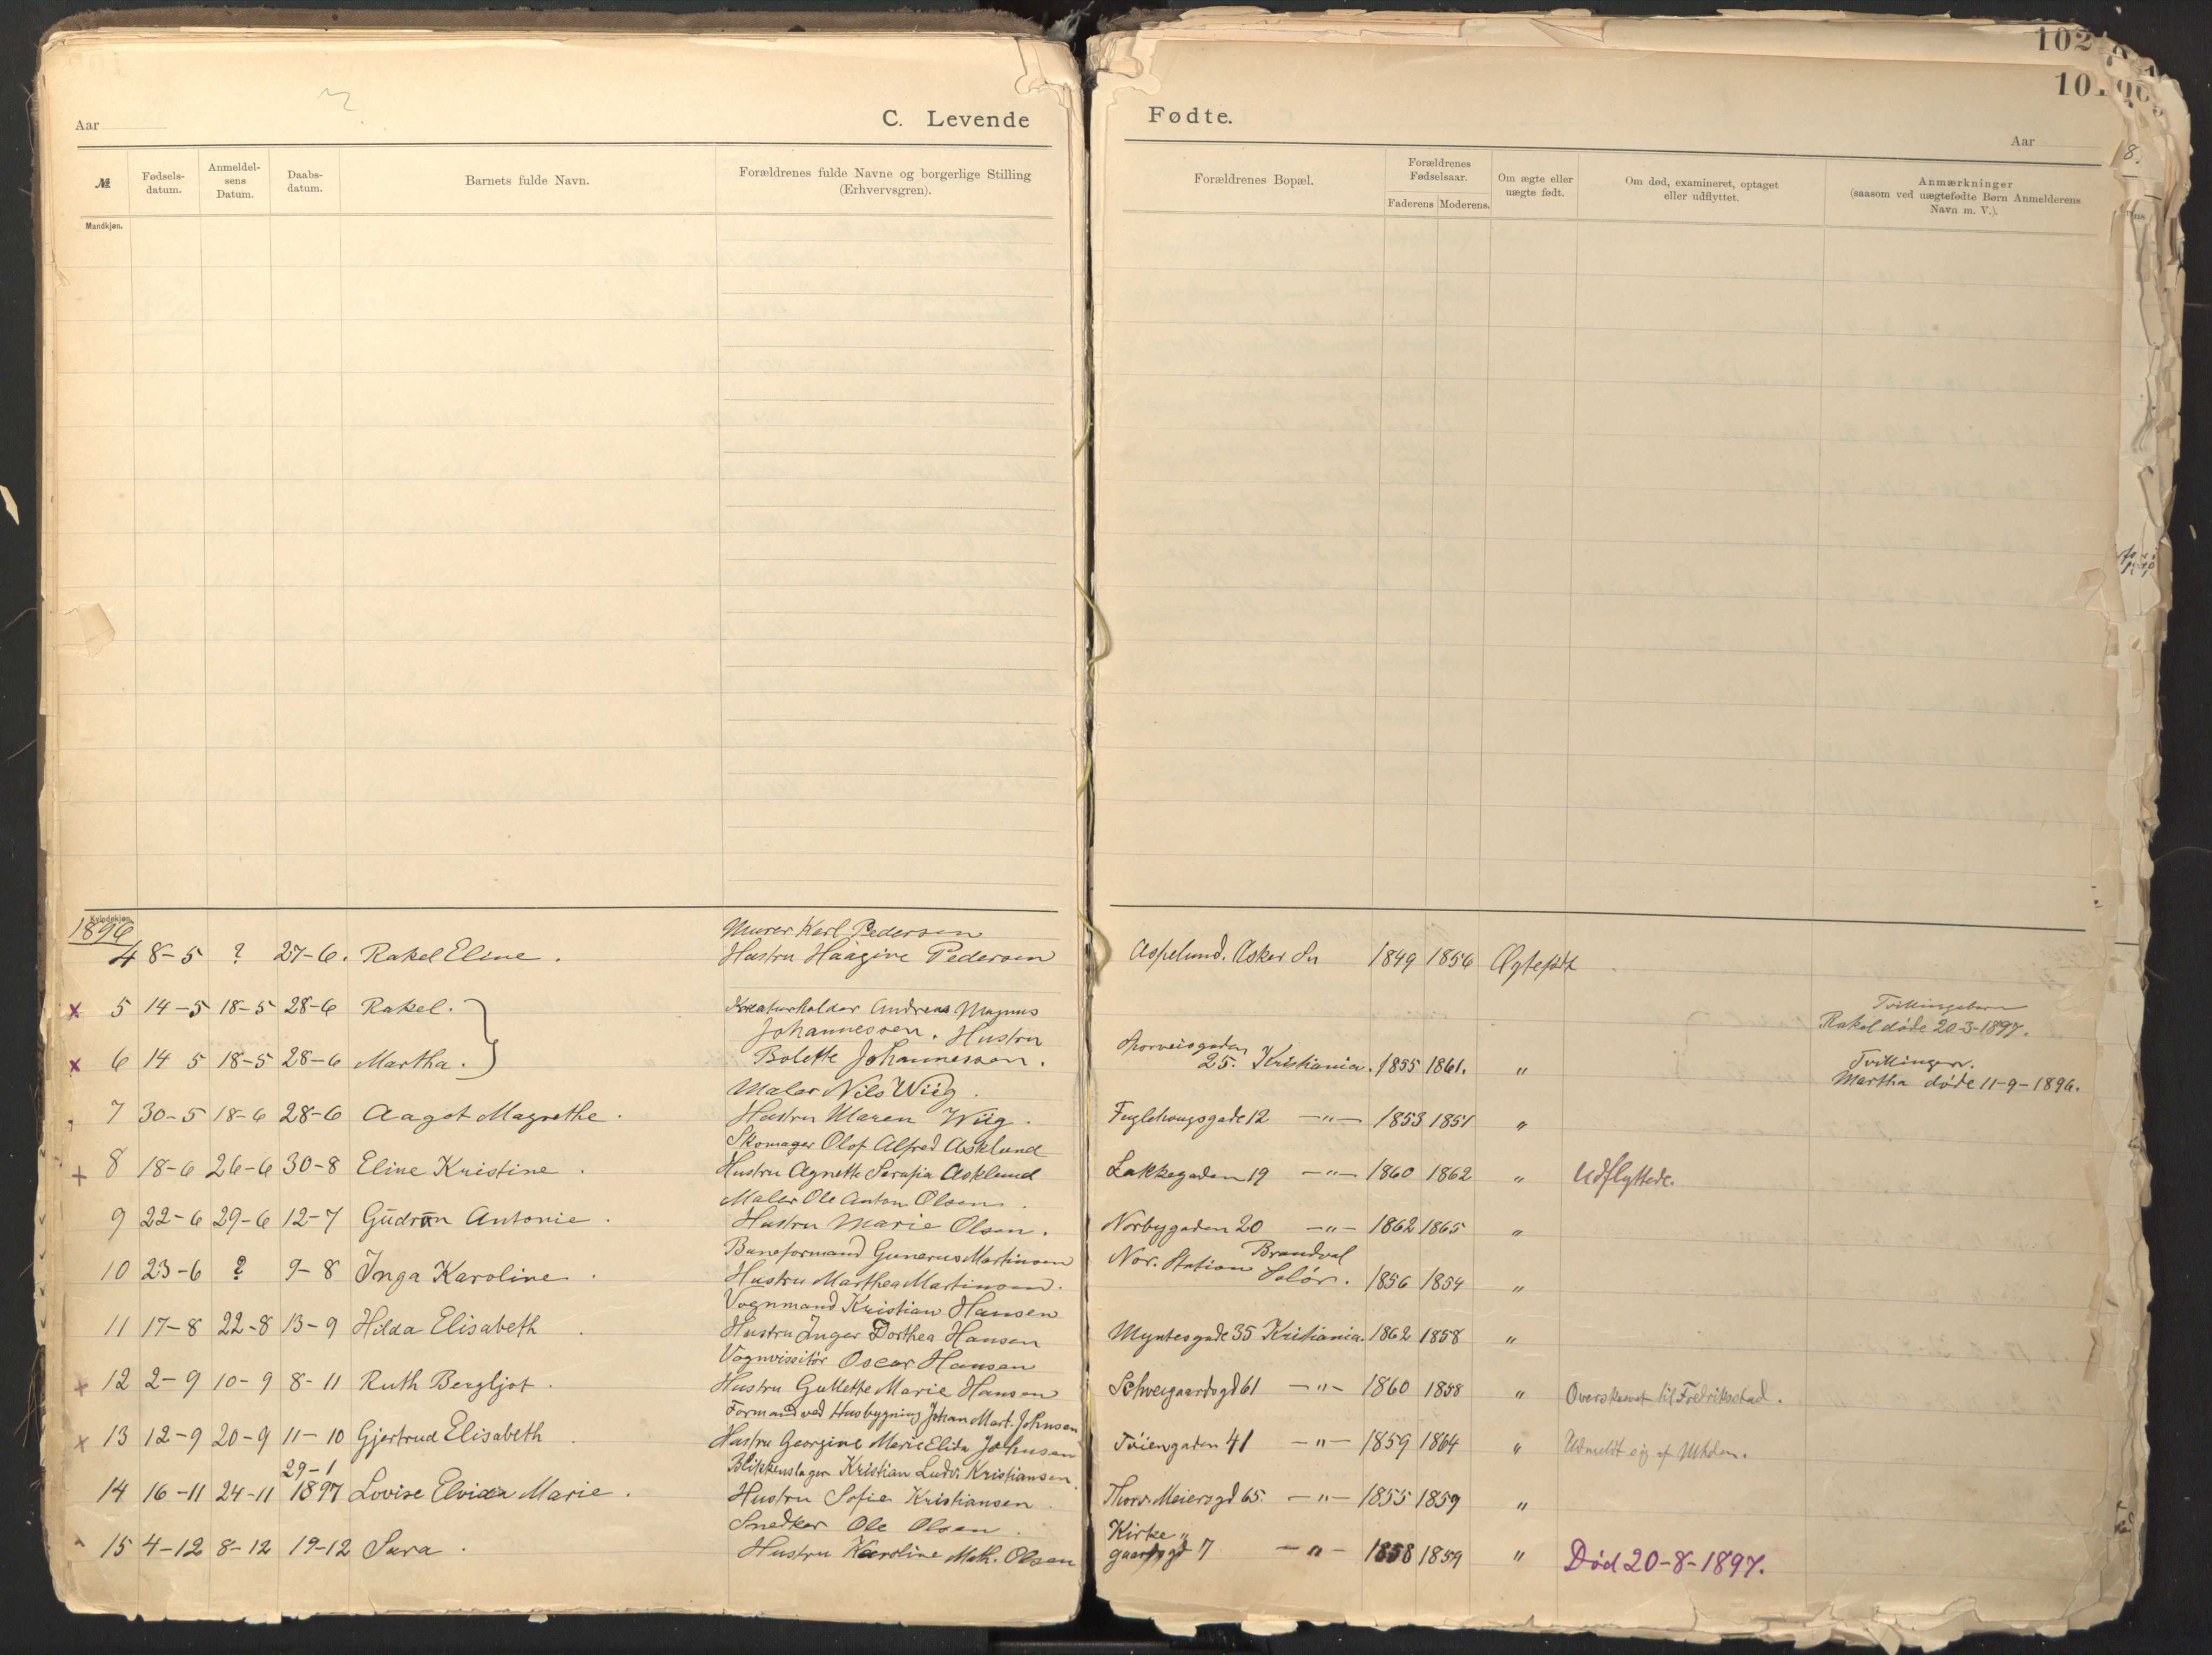 Aar
C. Levende
Fødte.
Aar
102
№
Fødsels-datum.
Anmeldel-sens Datum.
Daabs-datum.
Barnets fulde Navn.
Forældrenes fulde Navne og borgerlige Stilling (Erhvervsgren).
Forældrenes Bopæl.
Forældrenes Fødselsaar.
Faderens Moderens.
Om ægte eller uægte født.
Om død, examineret, optaget eller udflyttet.
Anmærkninger (saasom ved uægtefødte Børn Anmelderens Navn m. V.).
Mandkjøn.
Kvindekjøn.
1896
Murer Karl Pedersen
4 8-5 ? 27-6. Rakel Eline. Hustru Haagine Pedersen Aspelund. Asker Sn 1849 1856 Ægtefødt
Tvillingebarn
x 5 14-5 18-5 28-6 Rakel. Kreaturholder Andreas Magnus Rakel døde 20-3-1897.
Johannessen. Hustru
x 6 14 5 18-5 28-6 Martha. Bolette Johannessen. Sporveisgaden 25. Kristiania. 1855 1861. " Tvillinger.
Martha døde 11-9-1896.
Maler Nils Wiig.
7 30-5 18-6 28-6 Aagot Magnethe. Hustru Maren Wiig. Fuglehaugsgade 12 -"- 1853 1851 "
Skomager Olof Alfred Asklund
+ 8 18-6 26-6 30-8 Eline Kristine. Hustru Agnethe Serafia Asklund Lakkegaden 19 -"- 1860 1862 " Udflyttede.
Maler Ole Anton Olsen.
9 22-6 29-6 12-7 Gudrun Antonie. Hustru Marie Olsen. Norbygaden 20 -"- 1862 1865 "
Baneformand Gunerus Martinsen
10 23-6 ? 9-8 Inga Karoline. Hustru Marthea Martinsen. Nor. Station Brandval Solør. 1856 1854 "
Vognmand Kristian Hansen
11 17-8 22-8 13-9 Hilda Elisabeth. Hustru Inger Dorthea Hansen Myntesgade 35 Kristiania. 1862 1858 "
Vognvisitør Oscar Hansen
x 12 2-9 10-9 8-11 Ruth Bergljot. Hustru Gullette Marie Hansen Schweigaardsgd 61 -"- 1860 1858 " Overskrevet til Fredriksstad.
Formand ved Husbygning Johan Mart. Johnsen
x 13 12-9 20-9 11-10 Gjertrud Elisabeth. Hustru Georgine Marie Elida Johnsen Tøiengaden 41 -"- 1859 1864 " Udmeldt sig af
Blikkenslager Kristian Ludv. Kristiansen
29-1
14 16-11 24-11 1897 Lovise Elvira Marie. Hustru Sofie Kristiansen. Thorv. Meiersgd 65. -"- 1855 1859 "
Snedker Ole Olsen.
15 4-12 8-12 19-12 Sara. Hustru Karoline Math. Olsen Kirke" gaardsgd 7 -"- 1858 1859 " Død 20-8-1897.